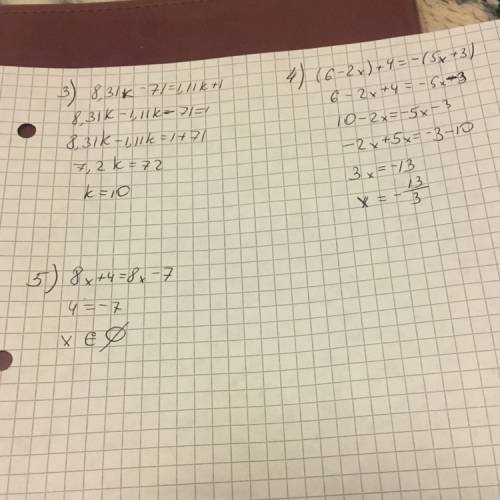 3) 8,31k-71=1,11k+1
8,31k-1,11k-71=1
8,31k-1,11k=1+71
7,2k=72
k=10
4) (6-2x)+4=-(5x+3)
6-2x+4=-5x-3
10-2x=-5x-3
-2x+5x=-3-10
3x=-13
x=-13/3
5) 8x+4=8x-7
4=-7
x∈∅